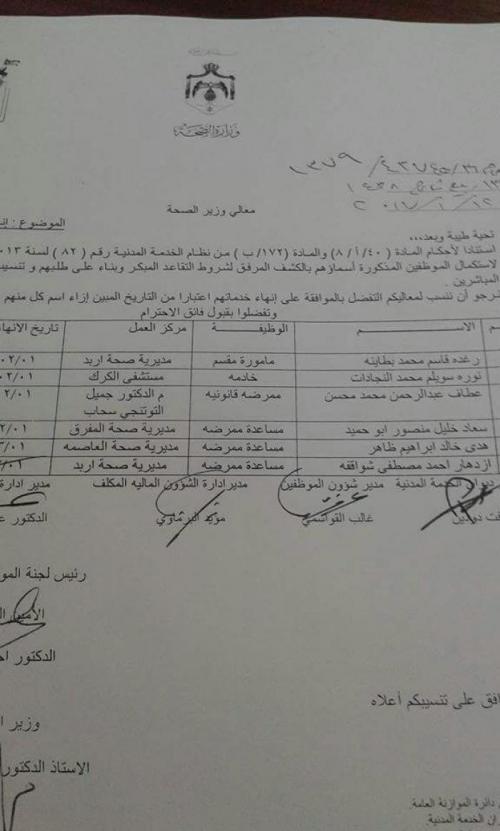 وزارة الصحة
معالي وزير الصحة
الموضوع :
تحية طيبة وبعد،،،
استنادا لأحكام المادة ( ٤٠/ أ / ٨) والمادة (١٧٢/ ب ) من نظام الخدمة المدنية رقم ( ٨٢ ) لسنة
لاستكمال الموظفين المذكورة أسماؤهم بالكشف المرفق لشروط التقاعد المبكر وبناء على طلبهم و
المباشرين .
نرجو أن ننسب لمعاليكم التفضل بالموافقة على إنهاء خدماتهم اعتبارا من التاريخ المبين إزاء اسم كل منهم
وتفضلوا بقبول فائق الاحترام
الاســـم الوظيفـــة مركز العمل تاريخ
رغده قاسم محمد بطاينه مامورة مقسم مديرية صحة اربد
نوره سويلم محمد النجادات خادمه مستشفى الكرك
عطاف عبدالرحمن محمد محسن ممرضه قانونيه م الدكتور جميل التوتنجي سحاب
سعاد خليل منصور ابو حميد مساعدة ممرضه مديرية صحة المفرق
هدى خالد ابراهيم ظاهر مساعدة ممرضه مديرية صحة العاصمه
ازدهار احمد مصطفى شواقفه مساعدة ممرضه مديرية صحة اربد
ديوان الخدمة المدنية مدير شؤون الموظفين مدير ادارة الشؤون الماليه المكلف مدير ادارة
غالب القواسمي مؤيد الدكتور
رئيس لجنة
الدكتور
على تنسيبكم أعلاه
وزير
الاستاذ الدكتور
دائرة الموازنة العامة.
الخدمة المدنية.